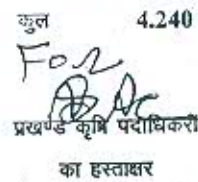 कुल 4.240
For
प्रखण्ड कृषि पदाधिकारी
का हस्ताक्षर